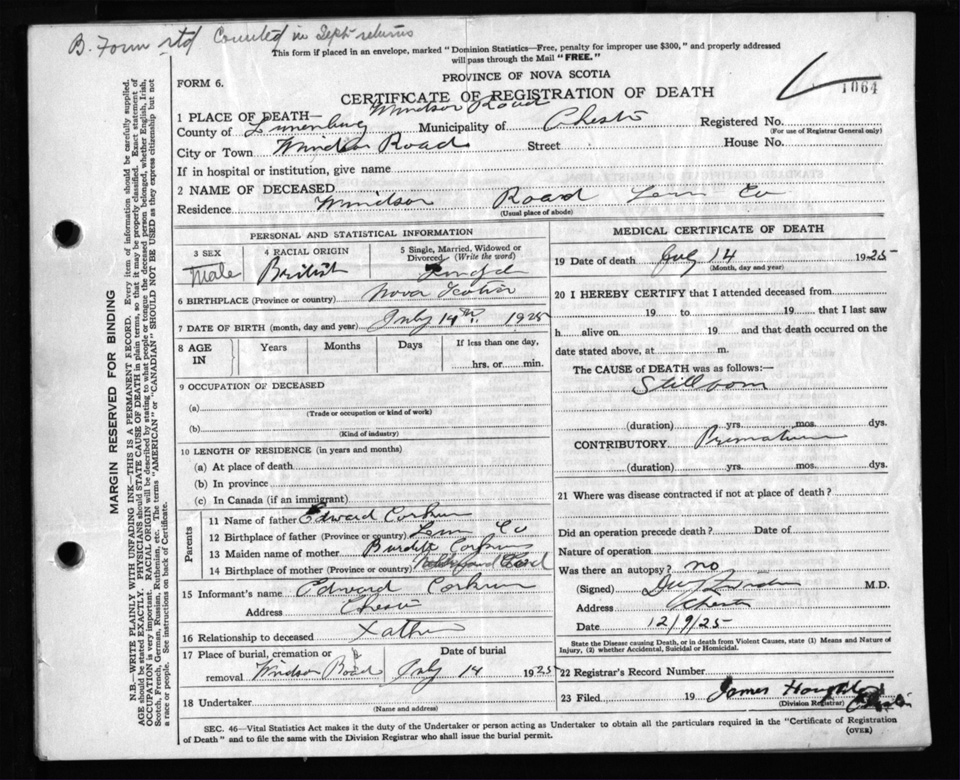 B. Form rtd Counted in Sept returns
This form if placed in an envelope, marked "Dominion Statistics—Free, penalty for improper use $300," and properly addressed
will pass through the Mail "FREE."
FORM 6.
PROVINCE OF NOVA SCOTIA
1064
CERTIFICATE OF REGISTRATION OF DEATH
1 PLACE OF DEATH— Windsor Road
County of Lunenburg Municipality of Chester Registered No.
(For use of Registrar General only)
City or Town Windsor Road Street House No.
If in hospital or institution, give name
2 NAME OF DECEASED
Residence Windsor Road Lun Co
(Usual place of abode)
PERSONAL AND STATISTICAL INFORMATION
3 SEX
Male
4 RACIAL ORIGIN
British
5 Single, Married, Widowed or
Divorced (Write the word)
Single
6 BIRTHPLACE (Province or country) Nova Scotia
7 DATE OF BIRTH (month, day and year) July 14th 1925
8 AGE
IN
Years Months Days
If less than one day,
hrs. or min.
9 OCCUPATION OF DECEASED
(a)
(Trade or occupation or kind of work)
(b)
(Kind of industry)
10 LENGTH OF RESIDENCE (in years and months)
(a) At place of death
(b) In province
(c) In Canada (if an immigrant)
Parents
11 Name of father Edward Corkum
12 Birthplace of father (Province or country) Lun Co
13 Maiden name of mother Corkum
14 Birthplace of mother (Province or country)
15 Informant's name Edward Corkum
Address Chester
16 Relationship to deceased Father
17 Place of burial, cremation or Date of burial
removal Windsor Road July 14 1925
18 Undertaker
(Name and address)
MEDICAL CERTIFICATE OF DEATH
19 Date of death July 14 1925
(Month, day and year)
20 I HEREBY CERTIFY that I attended deceased from
19 to 19 that I last saw
h alive on 19 and that death occurred on the
date stated above, at m.
The CAUSE of DEATH was as follows:—
Stillborn
(duration) yrs. mos. dys.
CONTRIBUTORY Premature
(duration) yrs. mos. dys.
21 Where was disease contracted if not at place of death?
Did an operation precede death? Date of
Nature of operation
Was there an autopsy? no
(Signed) M.D.
Address Chester
Date 12/9/25
State the Disease causing Death, or in death from Violent Causes, state (1) Means and Nature of
Injury, (2) whether Accidental, Suicidal or Homicidal.
22 Registrar's Record Number
23 Filed 19 James
(Division Registrar) Chester
SEC. 46—Vital Statistics Act makes it the duty of the Undertaker or person acting as Undertaker to obtain all the particulars required in the "Certificate of Registration
of Death" and to file the same with the Division Registrar who shall issue the burial permit.
(OVER)
MARGIN RESERVED FOR BINDING
N.B.—WRITE PLAINLY WITH UNFADING INK—THIS IS A PERMANENT RECORD. Every item of information should be carefully supplied.
AGE should be stated EXACTLY. PHYSICIANS should STATE CAUSE OF DEATH in plain terms, so that it may be properly classified. Exact statement of
OCCUPATION is very important. RACIAL ORIGIN will be described by stating to what people or tongue the deceased person belonged, whether English, Irish,
Scotch, French, German, Russian, Ruthenian, etc. The terms "AMERICAN" or "CANADIAN" SHOULD NOT BE USED as they express citizenship but not
a race or people. See instructions on back of Certificate.